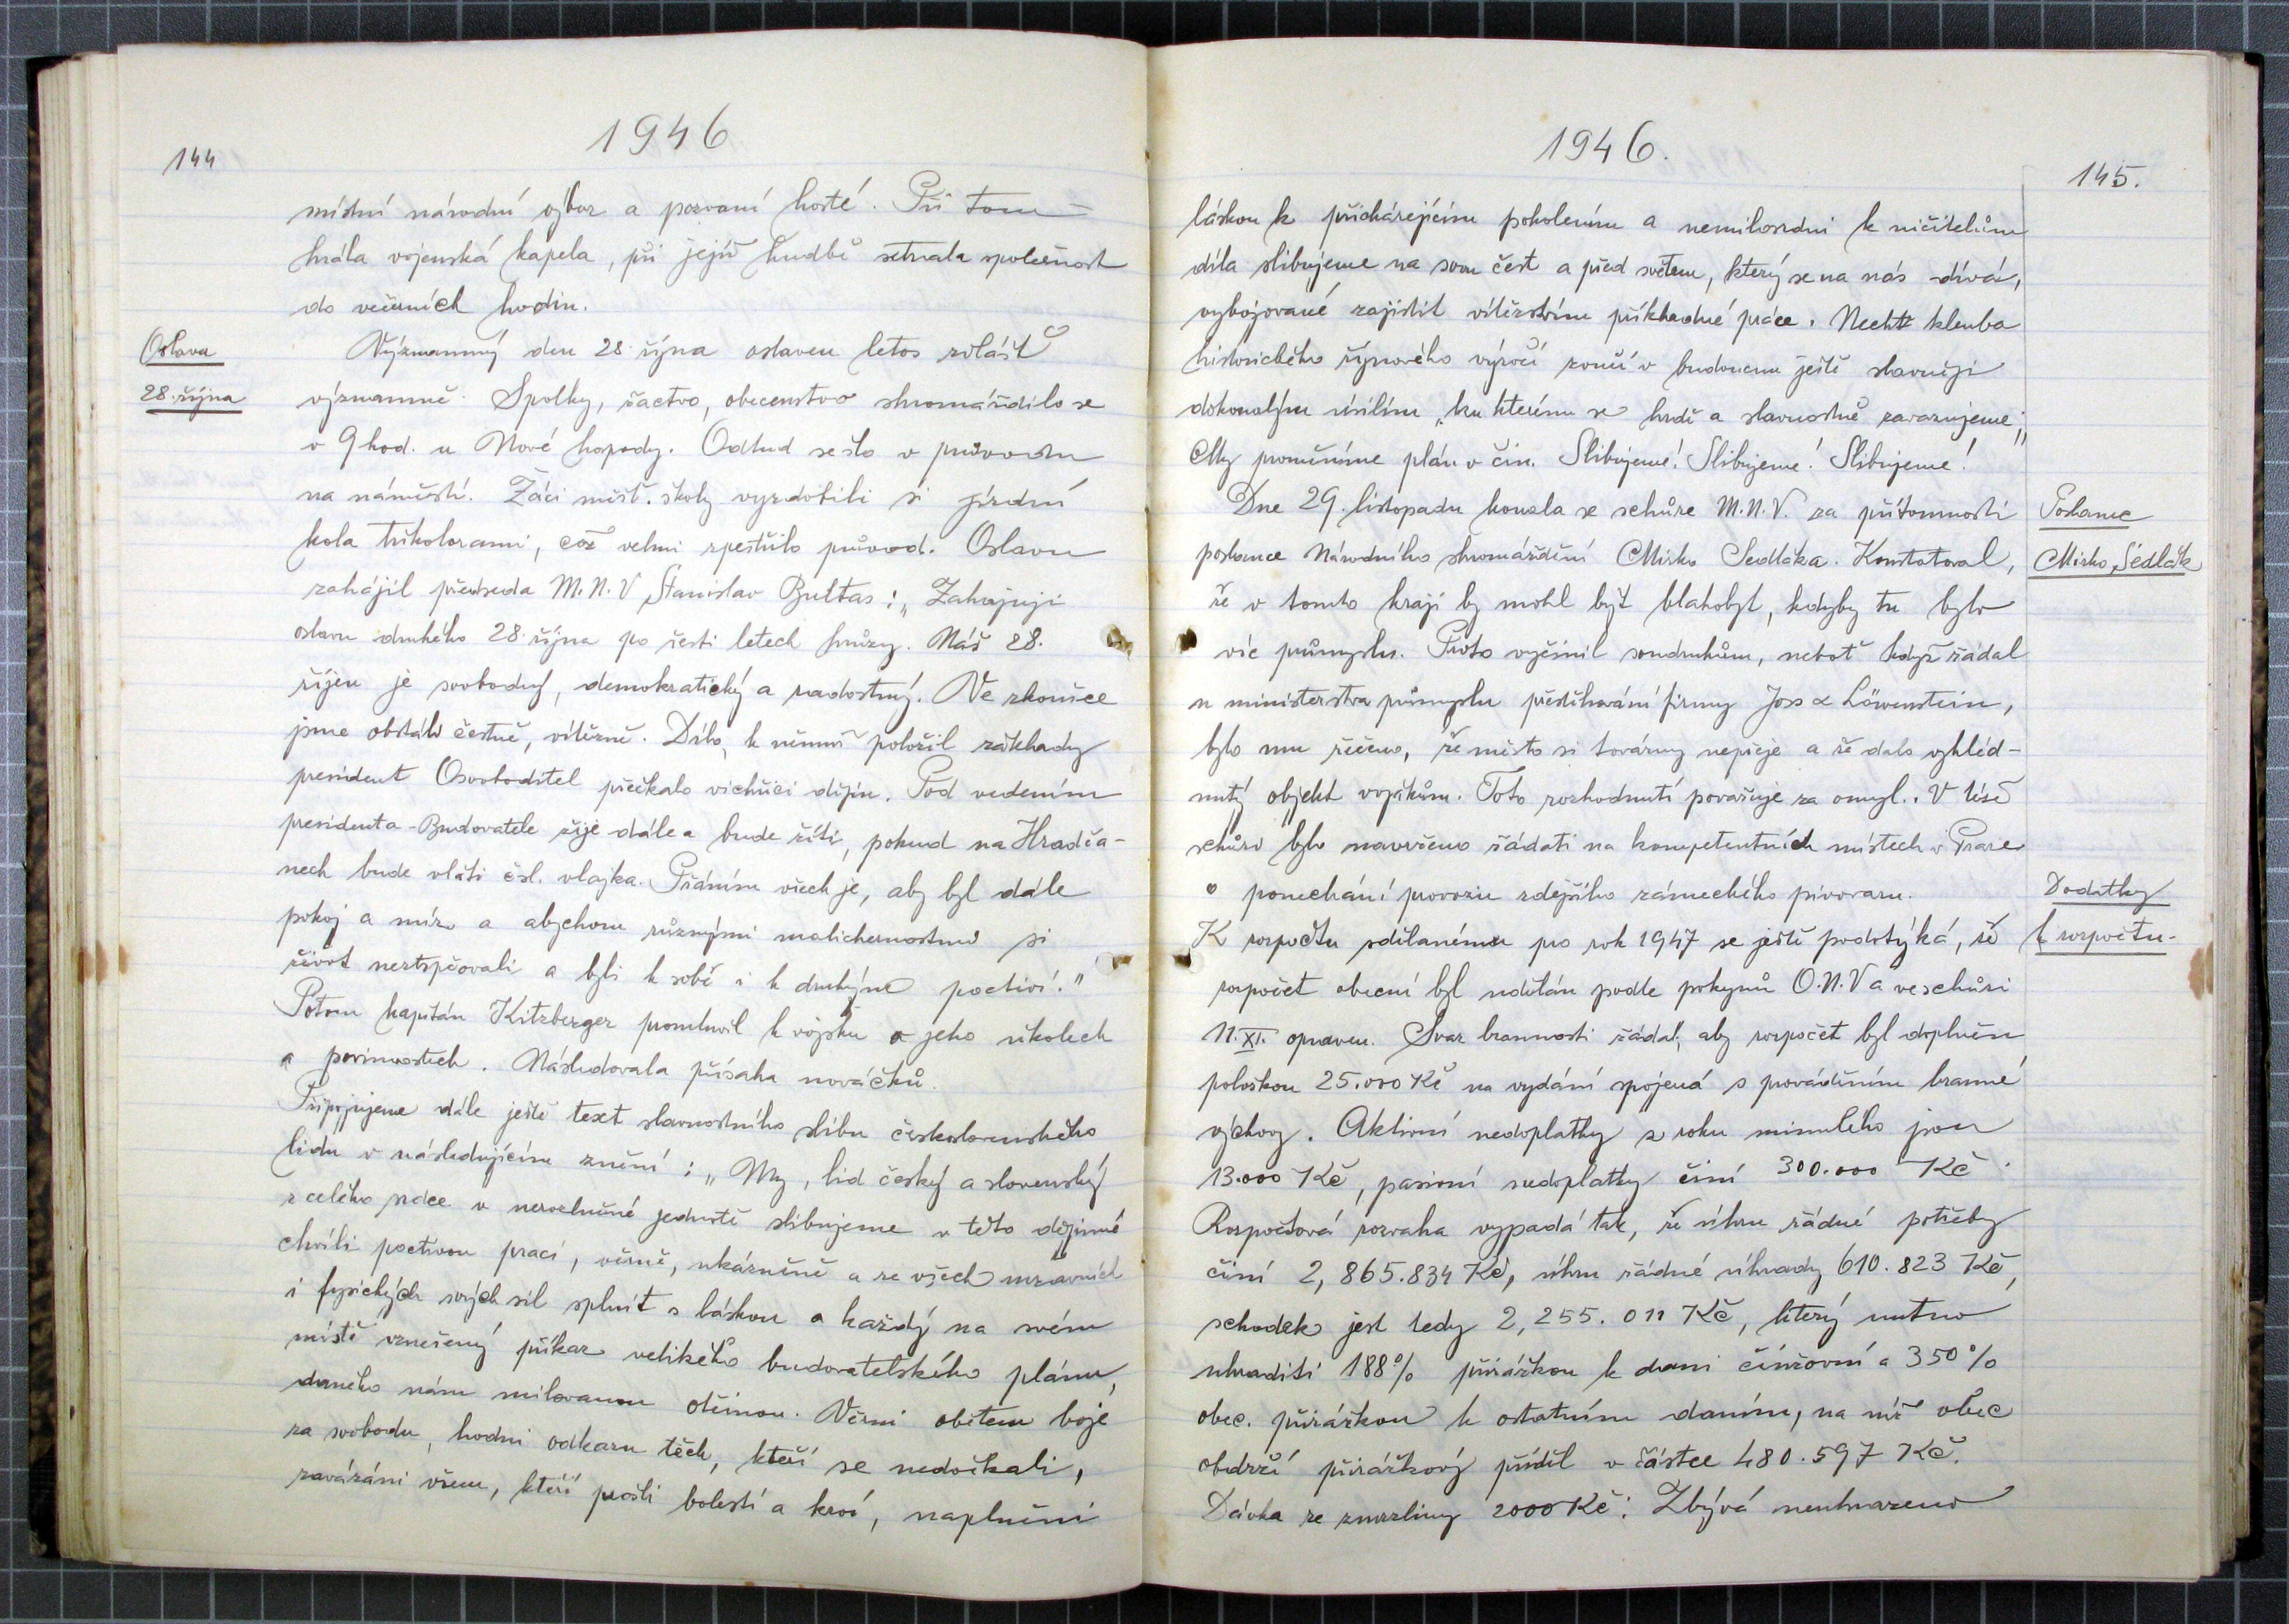 1946
144
místní národní výbor a pozvaní hosté. Při tom
hrála vojenská kapela, při jejíž hudbě setrvala společnost
do večerních hodin.
Oslava
28. října
Významný den 28 října oslaven letos zvlášť
významně. Spolky, žactvo, obecenstvo shromáždilo se
v 9 hod. u Nové hospody. Odtud se šlo v průvodu
na náměstí. Žáci měšť. školy vyzdobili si jízdní
kola trikolorami, což velmi zpestřilo průvod. Oslavu
zahájil předseda M.N.V Stanislav Bultas: „Zahajuji
oslavu druhého 28. října po šesti letech hrůzy. Náš 28.
říjen je svobodný, demokratický a radostný. Ve zkoušce
jsme obstáli čestně, vítězně. Dílo, k němuž položil základy
president Osvoboditel přečkalo vichřici dějin. Pod vedením
presidenta-Budovatele žije dále a bude žíti, pokud na Hradča-
nech bude vláti čsl. vlajka. Přáním všech je, aby byl dále
pokoj a mír a abychom různými malichernostmi si
život neztrpčovali a byli k sobě i k druhým poctiví."
Potom kapitán Kitzberger promluvil k vojsku o jeho úkolech
a povinnostech. Následovala přísaha nováčků.
Připojujeme dále ještě text slavnostního slibu československého
lidu v následujícím znění: „My, lid český a slovenský
z celého srdce v nerozlučné jednotě slibujeme v této dějinné
chvíli poctivou prací, věrně, ukázněně a ze všech mravních
i fysických svých sil splnit s láskou a každý na svém
místě vznešený příkaz velikého budovatelského plánu,
daného nám milovanou otčinou. Věrni obětem boje
za svobodu, hodni odkazu těch, kteří se nedočkali,
zavázáni všem, kteří prošli bolestí a krví, naplněni
1946.
145.
láskou k přicházejícím pokolením a nemilosrdni k ničitelům
díla slibujeme na svou čest a před světem, který se na nás dívá,
vybojované zajistit vítězstvím příkladné práce. Nechť klenba
historického říjnového výročí zvučí v budoucnu ještě slavněji
dokonalým úsilím, ku kterému se hrdě a slavnostně zavazujeme;
My proměníme plán v čin. Slibujeme! Slibujeme! Slibujeme!"
Dne 29. listopadu konala se schůze M.N.V. za přítomnosti
Poslanec
poslance Národního shromáždění Mirko Sedláka. Konstatoval,
Mirko Sedlák
že v tomto kraji by mohl být blahobyt, kdyby tu bylo
víc průmyslu. Proto vyčinil soudruhům, neboť když žádal
u ministerstva průmyslu přestěhování firmy Joss & Löwenstein,
bylo mu řečeno, že město si továrny nepřeje a že dalo vyhléd-
nutý objekt vojákům. Toto rozhodnutí považuje za omyl. V téže
schůzi bylo navrženo žádati na kompetentních místech v Praze
o ponechání provozu zdejšího zámeckého pivovaru.
Dodatky
K rozpočtu sdělanému pro rok 1947 se ještě podotýká, že
k rozpočtu.
rozpočet obecní byl udělán podle pokynů O.N.V a ve schůzi
11.XI. opraven. Svaz brannosti žádal, aby rozpočet byl doplněn
položkou 25.000 Kč na vydání spojená s prováděním branné
výchovy. Aktivní nedoplatky z roku minulého jsou
13.000 Kč, pasivní nedoplatky činí 300.000 Kč.
Rozpočtová rozvaha vypadá tak, že úhrn řádné potřeby
činí 2,865.834 Kč, úhrn řádné úhrady 610.823 Kč,
schodek jest tedy 2,255.011 Kč, který nutno
uhraditi 188% přirážkou k dani činžovní a 350%
obec. přirážkou k ostatním daním, na niž obec
obdrží přirážkový příděl v částce 480.597 Kč.
Dávka ze zmrzliny 2000 Kč. Zbývá neuhrazeno